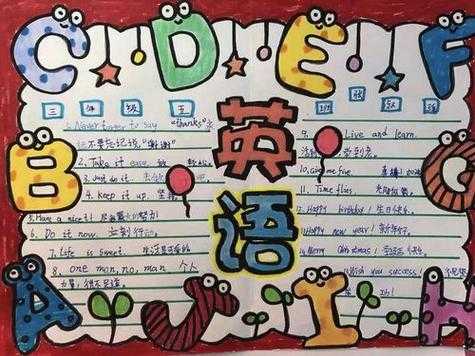 C D E F
三 年 级 五 班 张
英
语
1. Never forget to say "thanks" 永
远不要忘记说"谢谢"
2. Take it ease. 放 轻松
3. Just do it.
4. Keep it up. 坚
5. Have a nice 尽 的努力
6. Do it now. 立刻行动.
7. Life is sweet. 生活是可爱的
8. one man, no, man 个人
9. Live and learn.
10. Give me five.
11. Time flies
12. Happy birthday! 生日快乐.
Happy new year! 新年好.
14. Merry Christmas! 快乐.
Wish you success.
功!
B G
A J I H